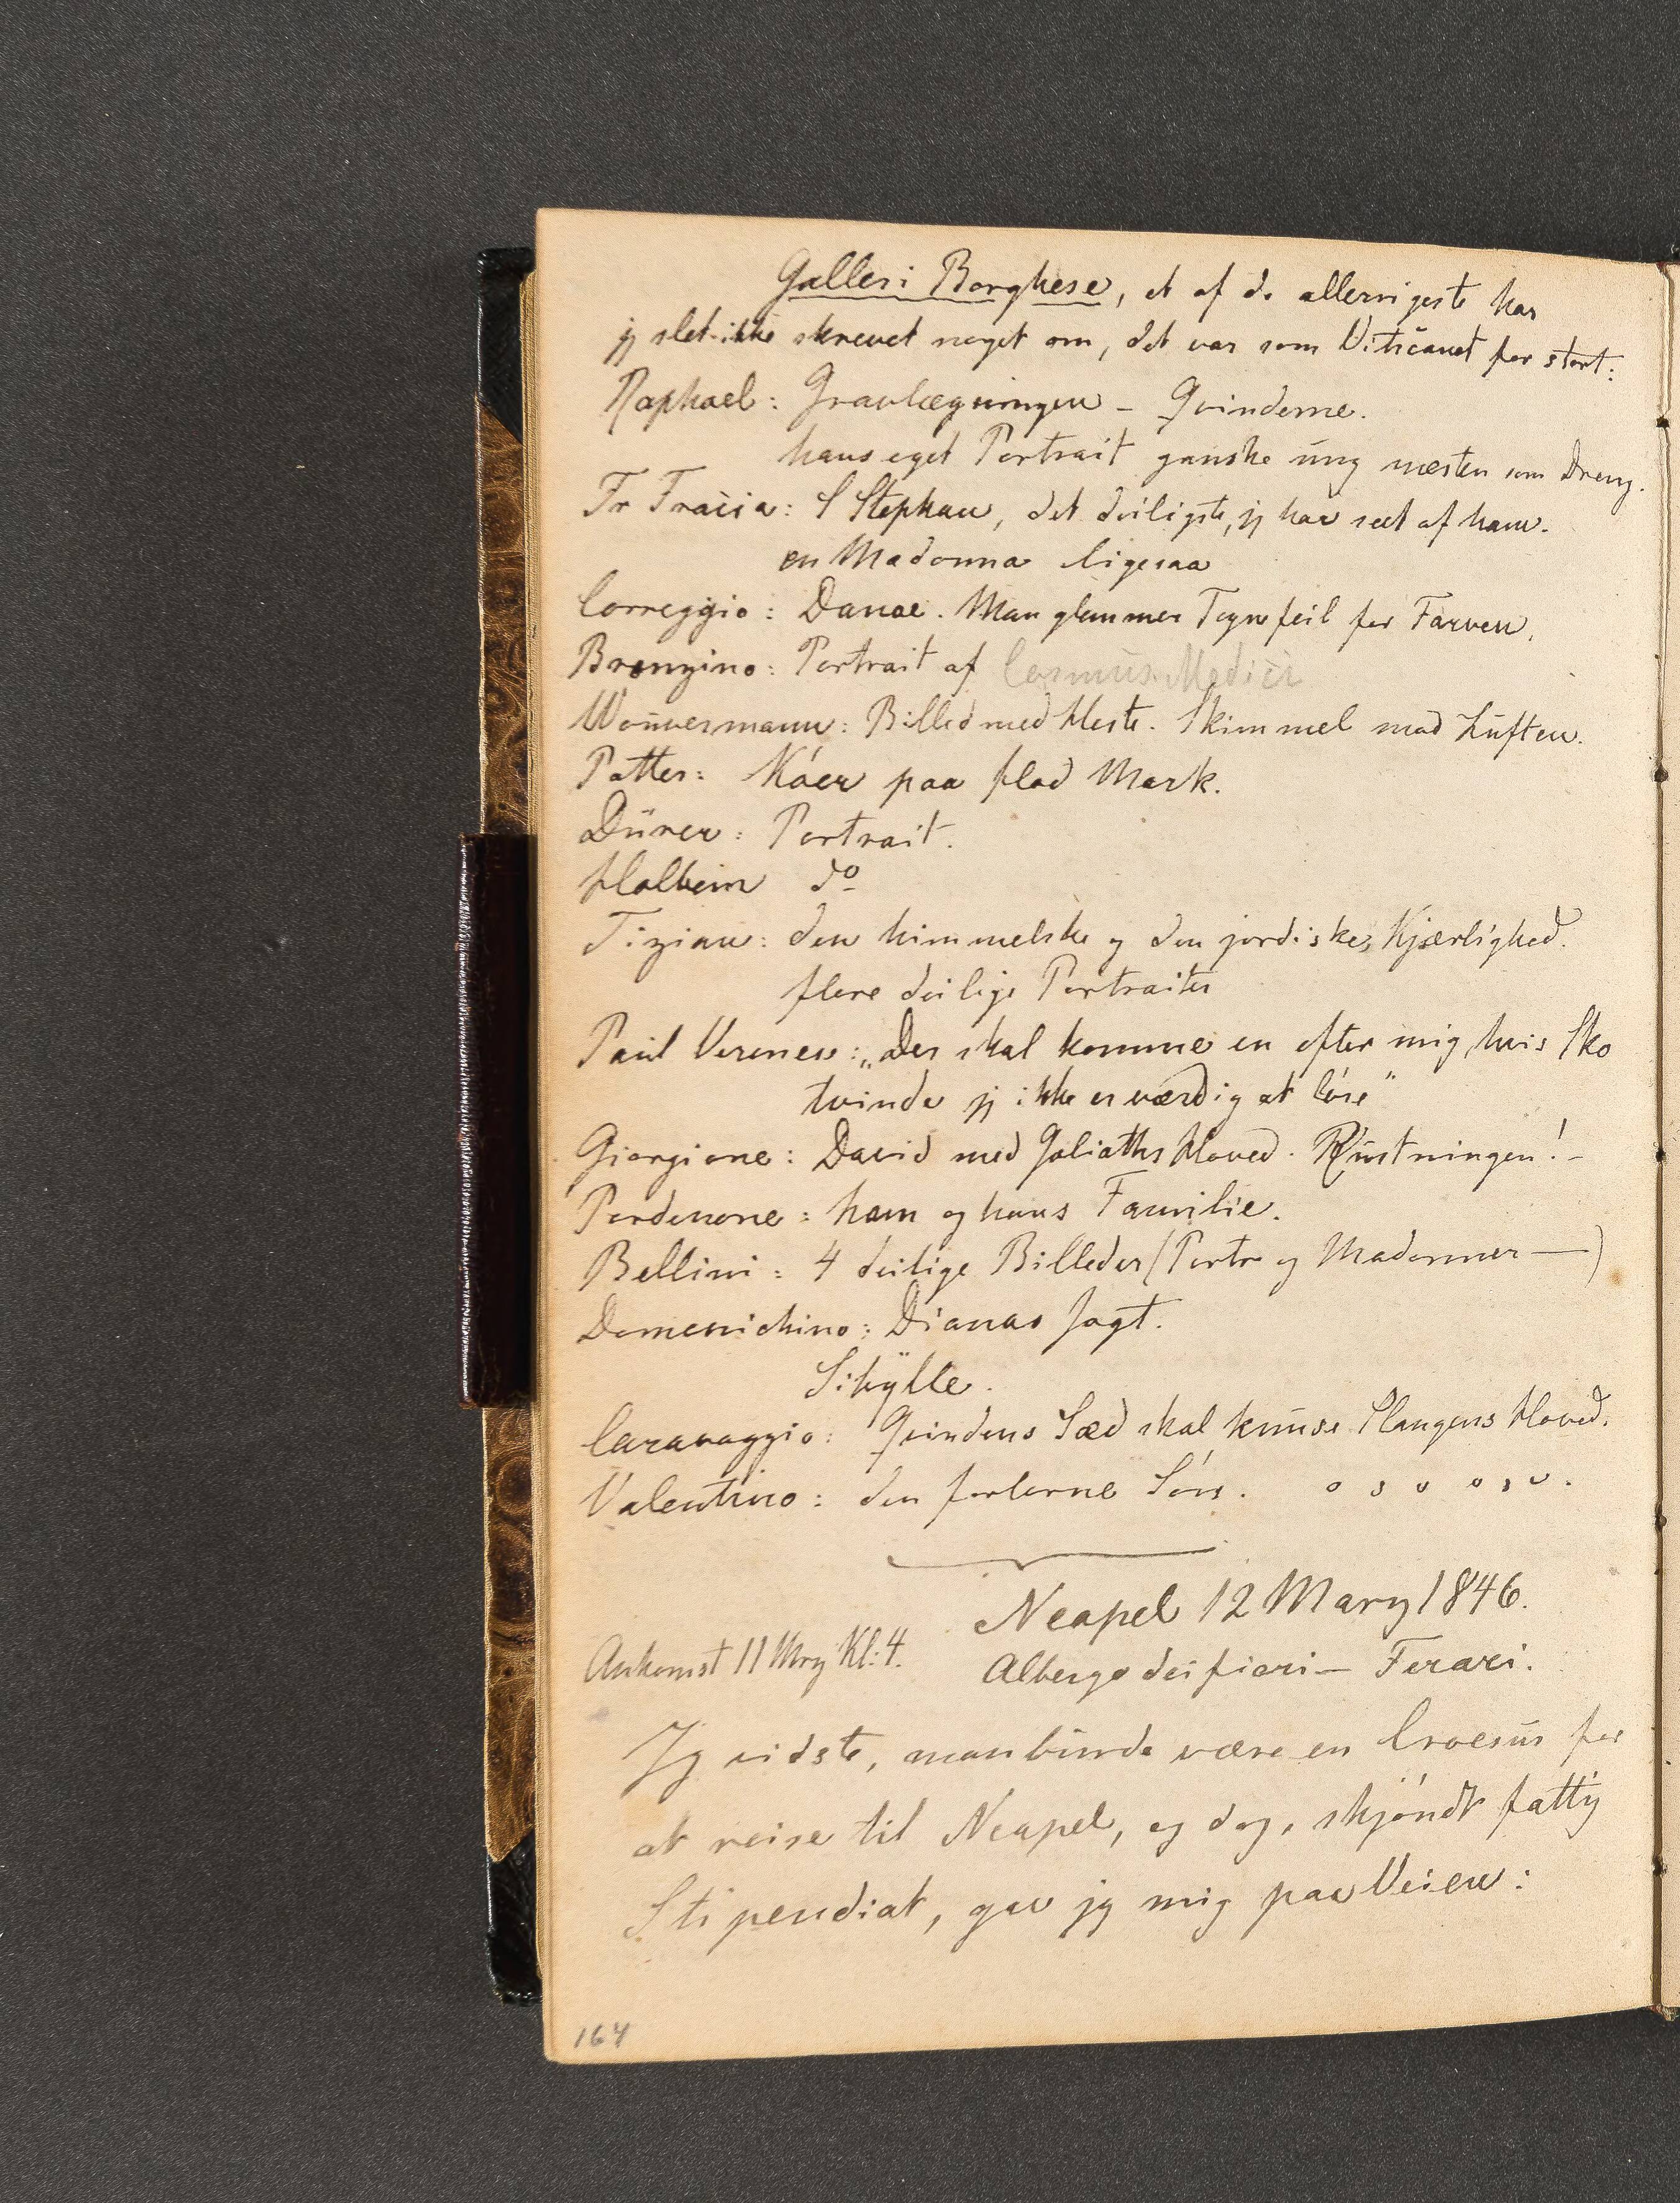 Galleri Borghese, et af de allerrigeste har
jg slet ikke skrevet noget om, det var som Viticanet for stort:
Raphael: Gravlægningen – Qvinderne.
hans eget Portrait ganske ung næsten som Dreng.
Fr Fracia: S Stephan, det deiligste, jg har seet af ham.
en Madonna ligesaa
Correggio: Danae. Man glemmer Tegnefeil for Farven.
Bronzino: Portrait af Cosmus Medici
Wouvermann: Billed med Heste. Skimmel mod Luften.
Potter: Köer paa flad Mark.
Dürer: Portrait.
Holbein do
Tizian: den himmelske og den jordiske Kjærlighed.
flere deilige Portraiter
Paul Verones: „Der skal komme en efter mig, hvis Sko
tvinde jg ikke er værdig at löse"
Giorgione: David med Goliaths Hoved. Rustningen! –
Pordenone: ham og hans Familie.
Bellini: 4 deilige Billeder (Portr og Madonner —)
Domenichino: Dianas Jagt.
Sibylle.
Caravaggio: Qvindens Sæd skal knuse Slangens Hoved.
Valentino: den forlorne Sön. o s v o s v.
Neapel 12 Marz 1846.
Ankomst 11 Mrz Kl: 4.
Albergo dei fiori – Ferari.
Jg vidste, man burde være en Croesus for
at reise til Neapel, og dog, skjöndt fattig
Stipendiat, gav jg mig paa Veien:
164